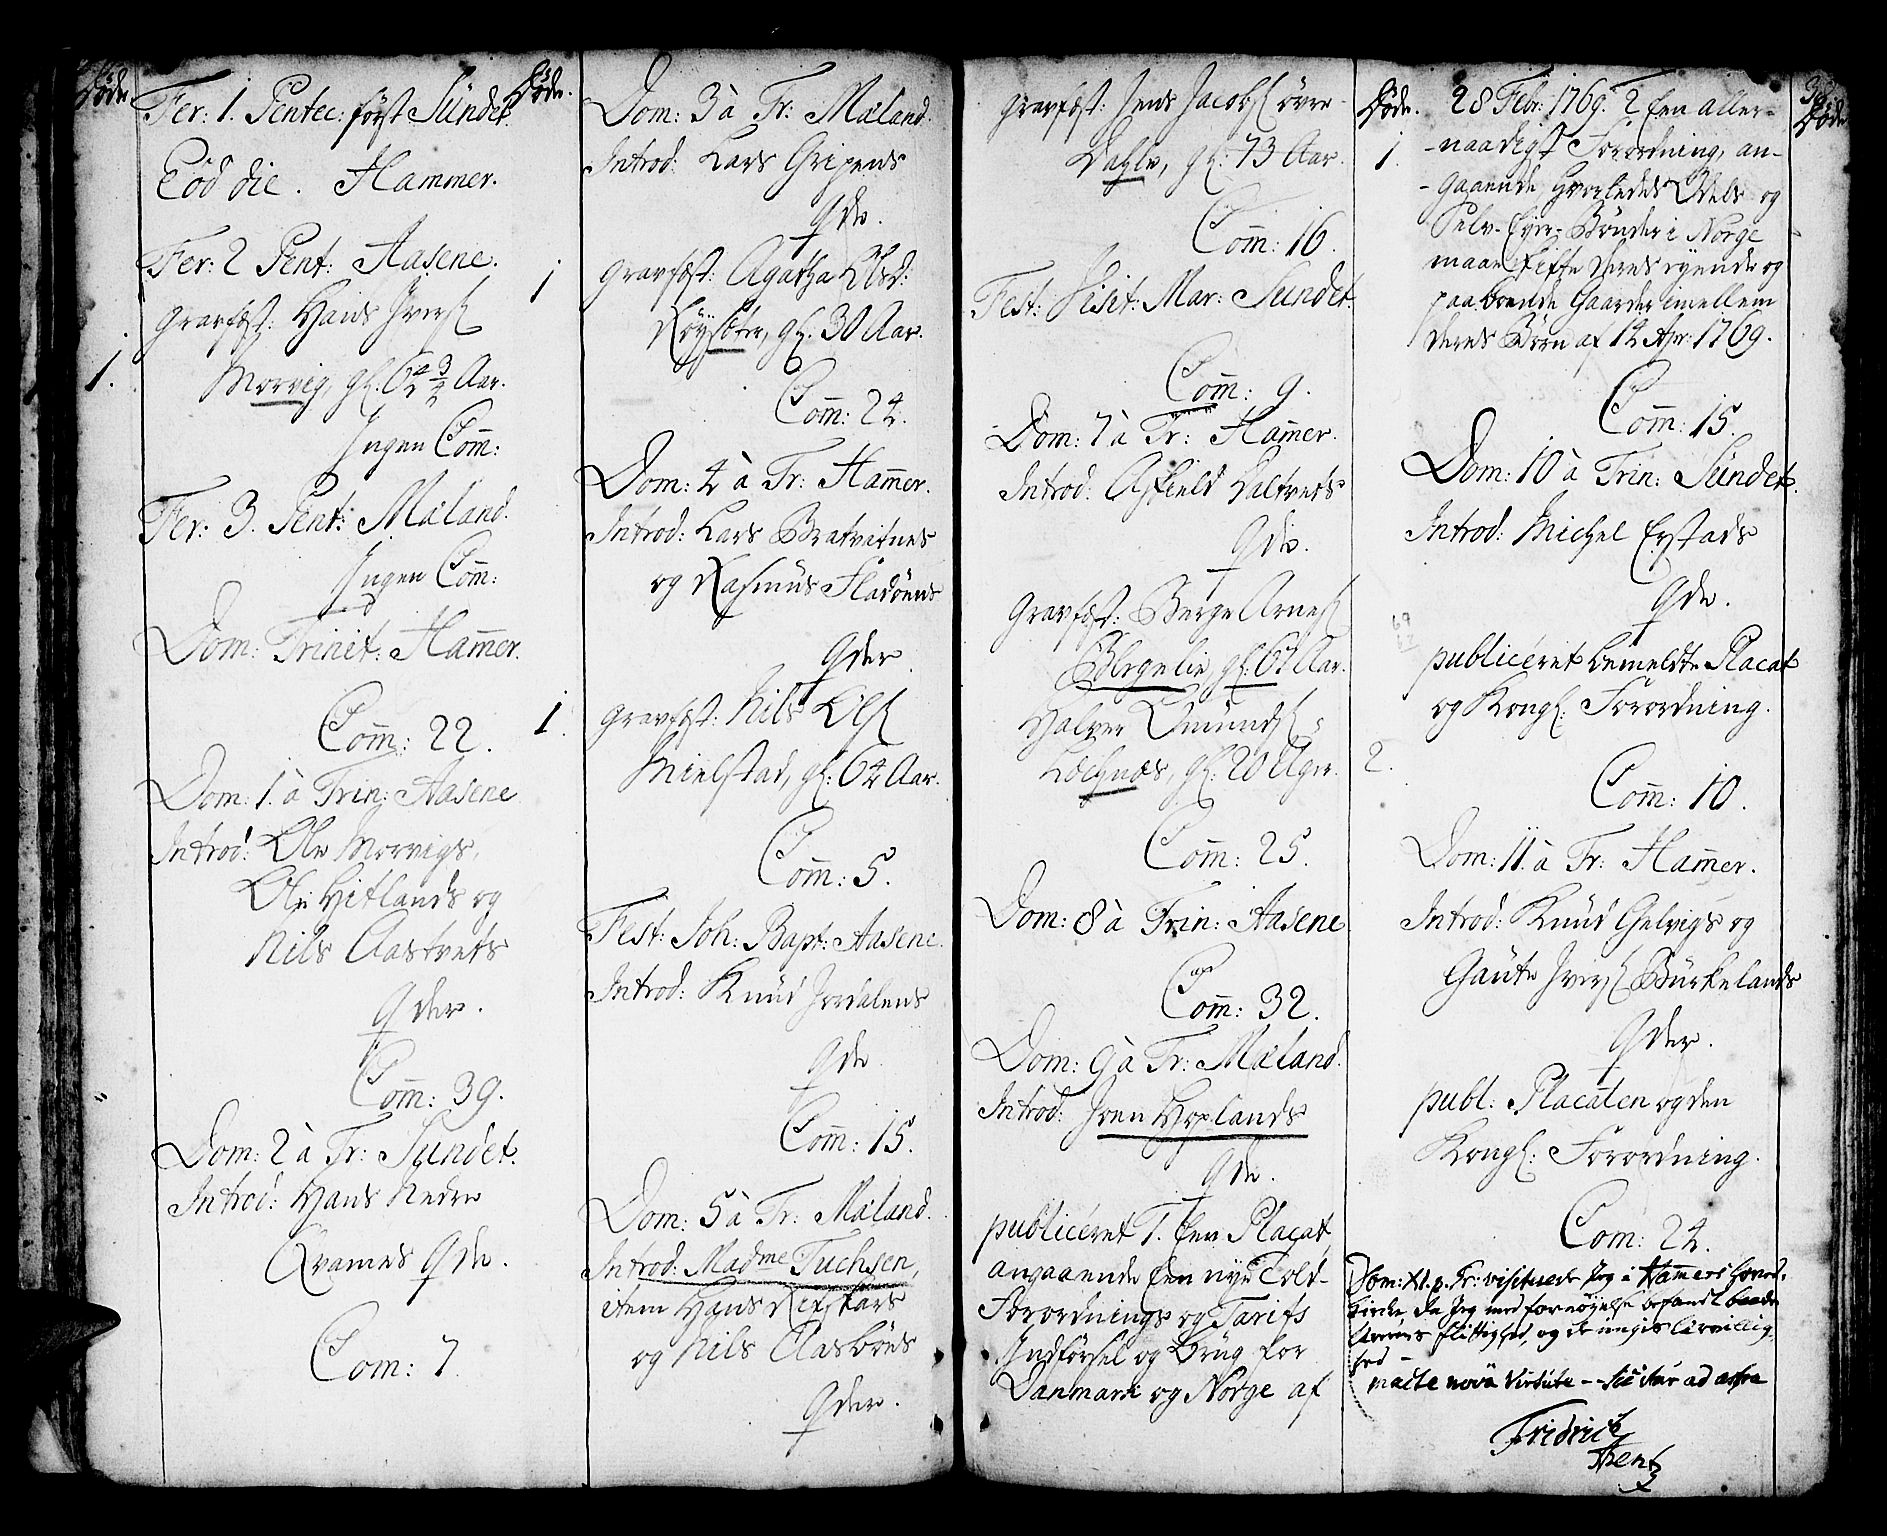 Døde.
Fer: 1. Pentec: først Sündet.
Eod die. Hammer.
Fer: 2 Pent: Aasene.
Gravfæst: Hans Iversøn
1. Morvig, gl: 62 3/4 Aar.
Ingen Com̄:
Fer: 3. Pent: Mæland.
Ingen Com̄:
Dom: Trinit: Ham̄er.
Com̄: 22.
Dom: 1. à Trin: Aasene
Introd: Ole Morvigs,
Ole Hitlands og
Nils Aastvets
Qder.
Com̄: 39.
Dom: 2 à Tr: Sundet.
Introd: Hans Nedre
Qvames Qde.
Com: 7
Døde.
Dom: 3 à Tr: Mæland.
Introd: Lars Gripens
Qde.
1 Gravfæst: Agatha Olsd:
Røysæter, gl. 30 Aar.
Com̄: 24.
Dom: 4 à Tr: Ham̄er.
Introd: Lars Bratvitnes
og Rasmus Fladøens
Qder.
1. Gravfæst: Nils Olsøn
Mielstad, gl: 64 Aar.
Com̄: 5.
Fest: Joh: Bapt: Aasene.
Introd: Knud Jordalens
Qde
Com̄: 15.
Dom: 5 à Tr: Mæland.
Introd: Madme Tuchsen,
item Hans Refskars
og Nils Aasbøes
Qder.
Gravfæst: Jens Jacobsøn øvre
Dahle, gl: 73 Aar.
Com̄: 16.
Fest: Visit: Mar: Sundet.
Com̄: 9.
Dom: 7 à Tr: Ham̄er.
Introd: Asfield Daltvets
Qde.
Gravfæst: Berge Arnesøn
Gl: 67 Aar.
Halvor
gl: 20 Uger.
Com̄: 25.
Dom: 8 à Trin: Aasene
Com̄: 32.
Dom: 9 à Tr: Mæland.
Introd: Iven Hoplands
Qde.
publiceret 1. Een Placat
angaaende Een nye Told-
Forordnings og Tarifs
Indførsel og Brug for
Danmark og Norge af
Døde. 1. 2.
28 Febr: 1769. 2 Een aller-
-naadigst Forordning, an-
-gaaende hvorledes Odels og
Selv-Eyer-Bønder i Norge
maae skifte deres eyende og
paaboende Gaarder imellem
deres Børn af 14 Apr: 1769.
Com̄: 15.
Dom: 10 à Trin: Sündet.
Introd: Michel Eystads
Qde.
publiceret bemeldte Placat
og Kongl: Forordning.
Com̄: 10.
Dom: 11. à Tr: Ham̄er.
Introd: Knud Gelvigs og
Gaute Iversøn Bürkelands
Qder.
publ: Placaten og den
Kongl: Forordning.
Com: 24.
Dom: XI. p. Tr: visiterede Jeg i Ham̄ers hoved-
Kirke, da Jeg med fornøyelse befandt baade
Lærerens flittighed, og de unges lærvillig-
hed -
macte nova Virtute - - sic itur ad astra
Fridrich
Arentz
Døde